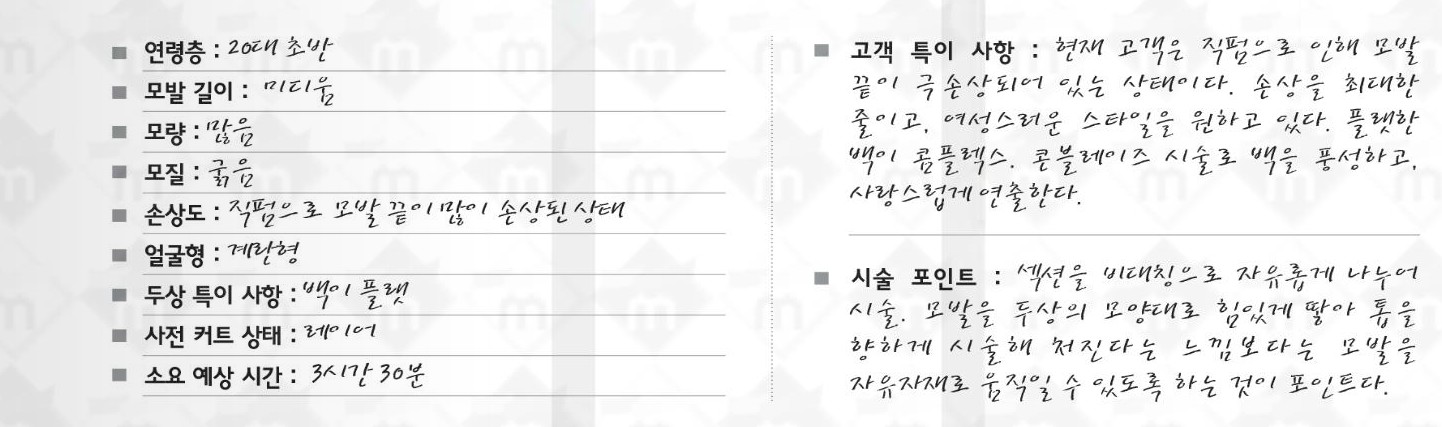 연령층 : 20대 초반
모발 길이 : 미디움
모량 : 많음
모질 : 굵음
손상도 : 직펌으로 모발 끝이 많이 손상된 상태
얼굴형 : 계란형
두상 특이 사항 : 백이 플랫
사전 커트 상태 : 레이어
소요 예상 시간 : 3시간 30분
고객 특이 사항 : 현재 고객은 직펌으로 인해 모발
끝이 극손상되어 있는 상태이다. 손상을 최대한
줄이고, 여성스러운 스타일을 원하고 있다. 플랫한
백이 콤플렉스. 콘블레이즈 시술로 백을 풍성하고,
사랑스럽게 연출한다.
시술 포인트 : 섹션을 비대칭으로 자유롭게 나누어
시술. 모발을 두상의 모양대로 힘있게 땋아 톱을
향하게 시술해 처진다는 느낌보다는 모발을
자유자재로 움직일 수 있도록 하는 것이 포인트다.